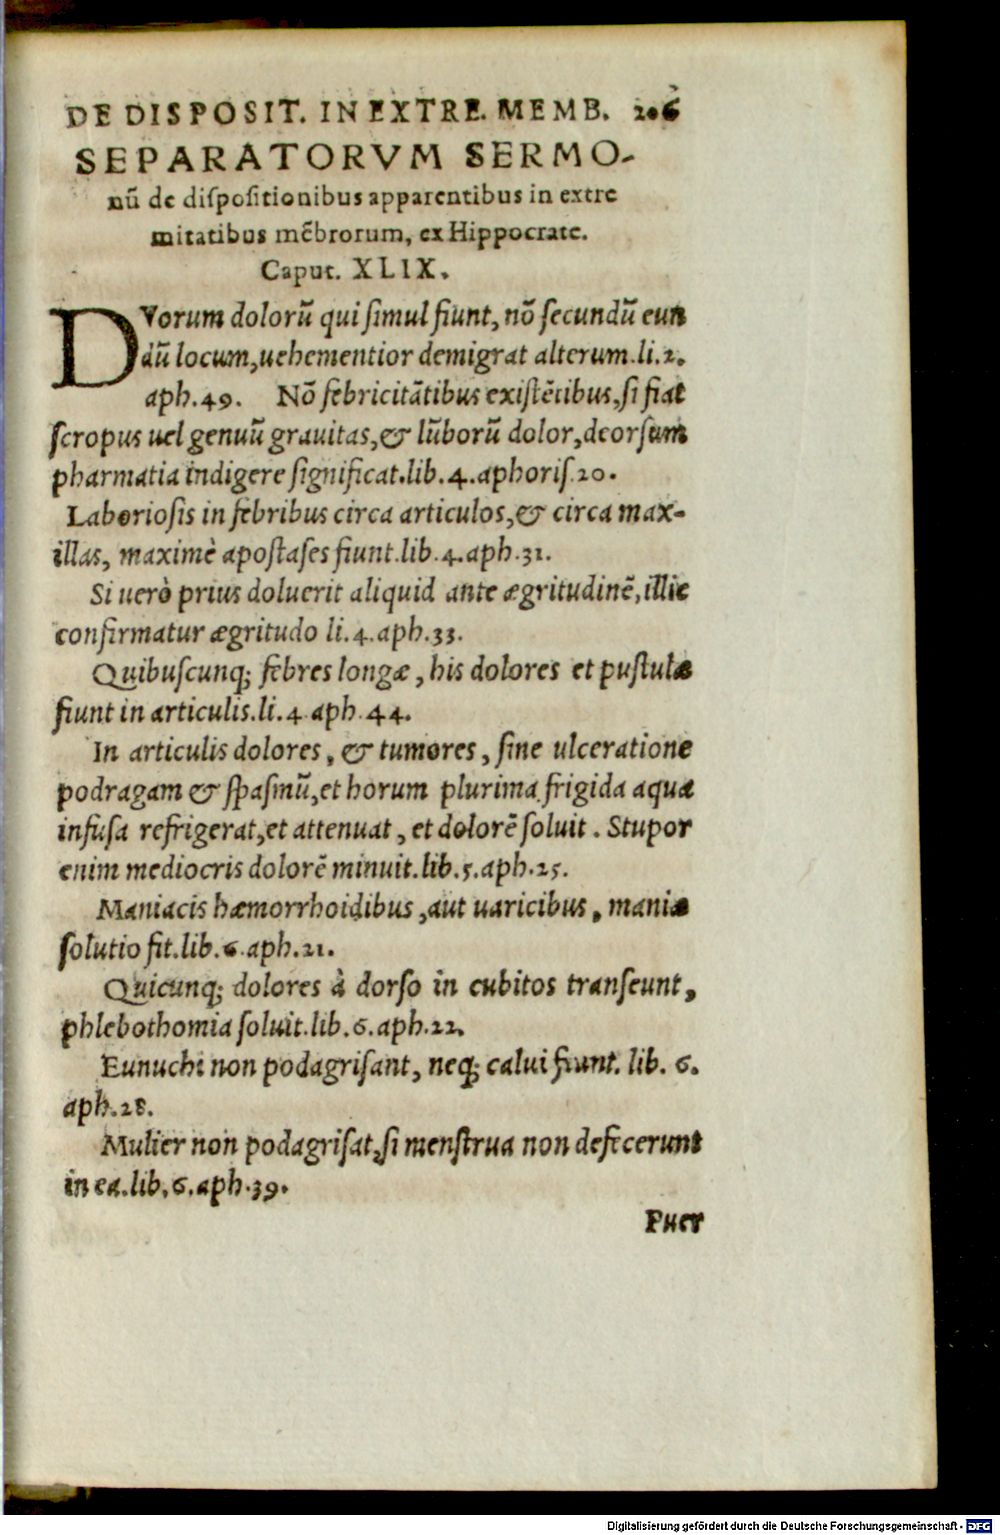 DE DISPOSIT. IN EXTRE. MEMB. 206
SEPARATORVM SERMO-
nū de diſpoſitionibus apparentibus in extre
mitatibus mēbrorum, ex Hippocrate.
Caput. XLIX.
DVorum dolorū qui ſimul fiunt, nō ſecundū eun
dū locum, uehementior demigrat alterum. li. 2.
aph. 49. Nō febricitātibus exiſtētibus, ſi fiat
ſcropus uel genuū grauitas, & lūborū dolor, deorſum
pharmatia indigere ſignificat. lib. 4. aphoriſ. 20.
Laborioſis in febribus circa articulos, & circa max-
illas, maximè apoſtaſes fiunt. lib. 4. aph. 31.
Si uerò prius doluerit aliquid ante ægritudinē, illic
confirmatur ægritudo li. 4. aph. 33.
Quibuſcunq; febres longæ, his dolores et puſtulæ
fiunt in articulis. li. 4 aph. 44.
In articulis dolores, & tumores, ſine ulceratione
podragam & ſpaſmū, et horum plurima frigida aqua
infuſa refrigerat, et attenuat, et dolorē ſoluit. Stupor
enim mediocris dolorē minuit. lib. 5. aph. 25.
Maniacis hæmorrhoidibus, aut uaricibus, maniæ
ſolutio fit. lib. 6. aph. 21.
Quicunq; dolores à dorſo in cubitos tranſeunt,
phlebothomia ſoluit. lib. 6. aph. 22.
Eunuchi non podagriſant, neq; calui fiunt. lib. 6.
aph. 28.
Mulier non podagriſat, ſi menſtrua non defecerunt
in ea. lib. 6. aph. 39.
Puer
Digitalisierung gefördert durch die Deutsche Forschungsgemeinschaft - DFG